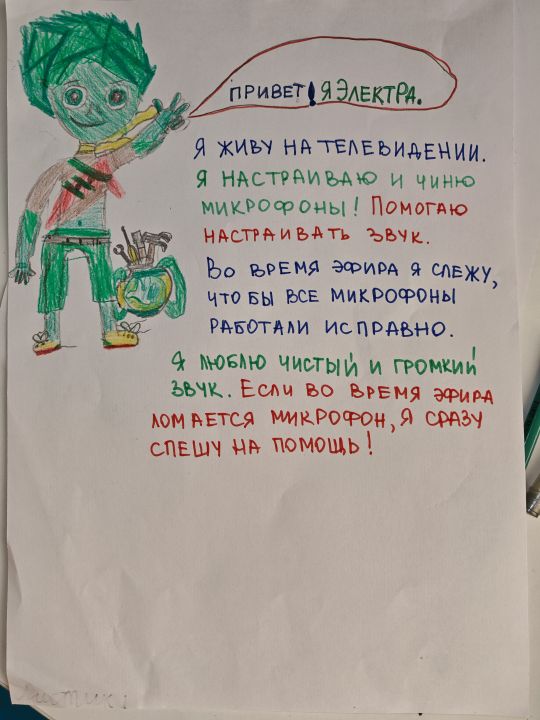 Привет! Я Электра.
Я живу на телевидении.
Я настраиваю и чиню
микрофоны! Помогаю
настраивать звук.
Во время эфира я слежу,
что бы все микрофоны
работали исправно.
Я люблю чистый и громкий
звук. Если во время эфира
ломается микрофон, я сразу
спешу на помощь!